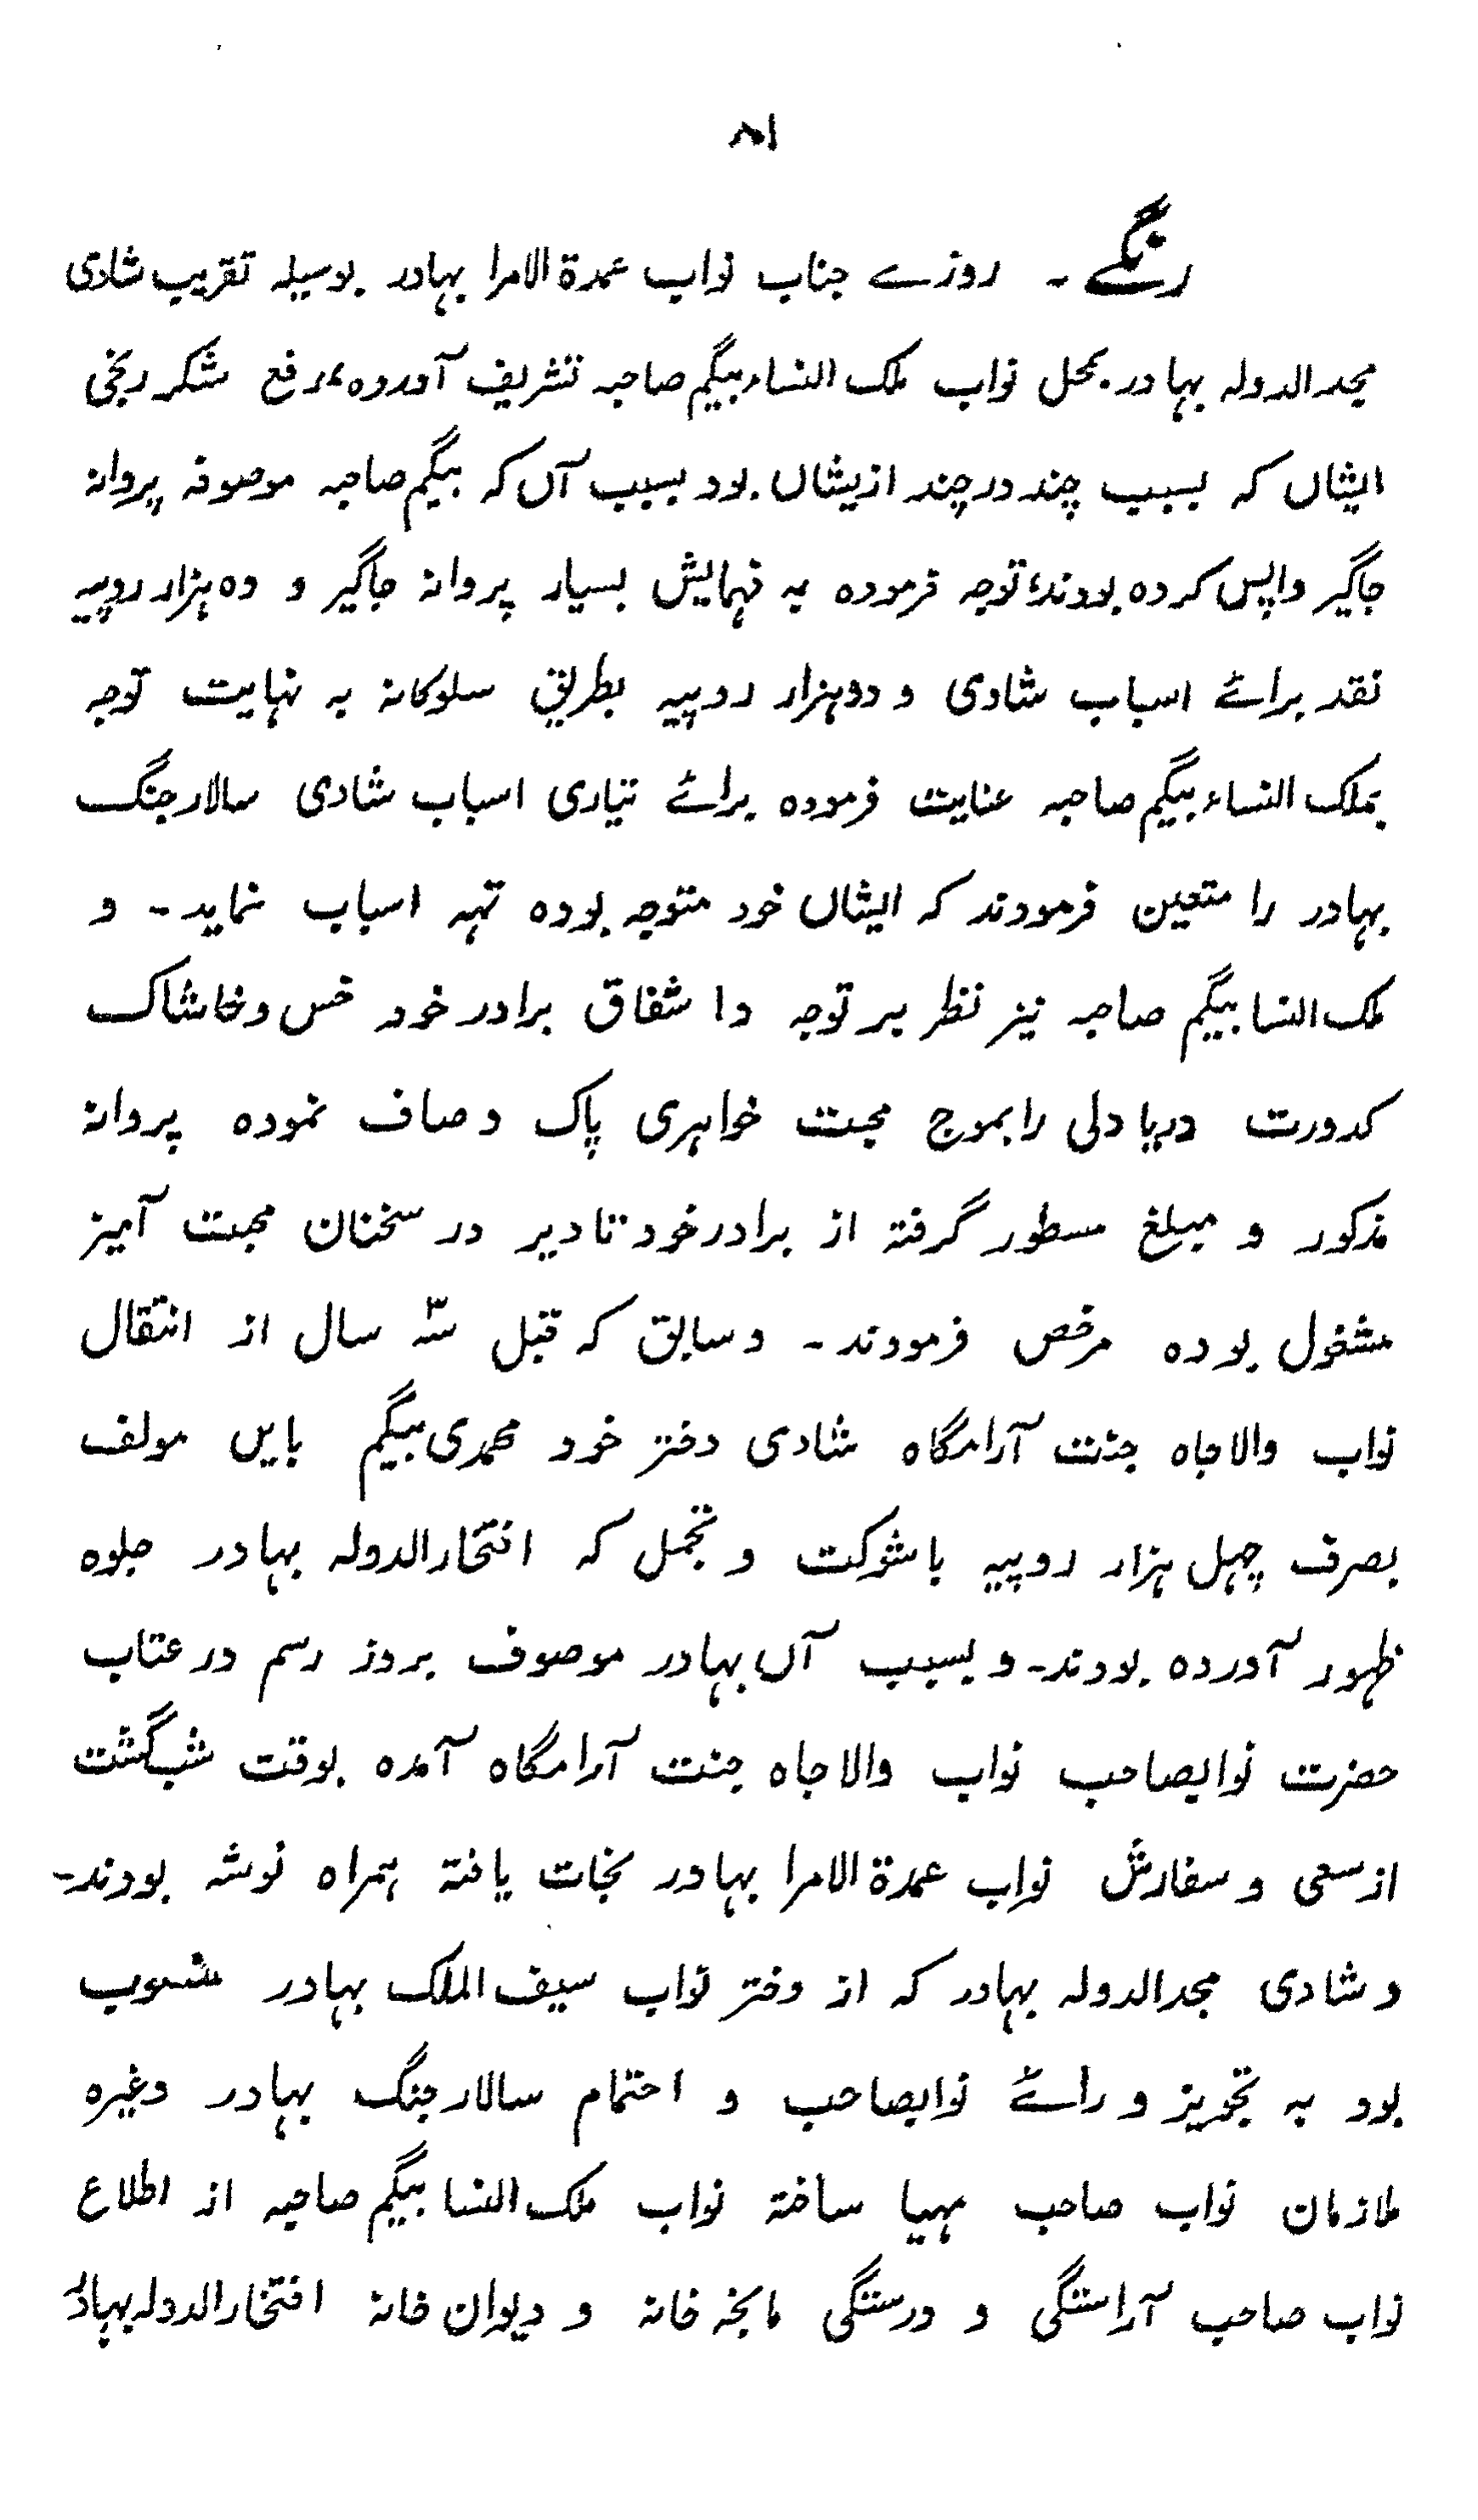 ۸۱
رنگے ۔ روزے جناب نواب عمدۃ الامرا بہادر بوسیلہ تقریب شادی
مجد الدولہ بہادر بمحل نواب ملک النساء بیگم صاحبہ تشریف آوردہ، رفع شکر رنجی
ایشاں کہ بسبب چند در چند ازیشاں بود بسبب آں کہ بیگم صاحبہ موصوفہ پروانہ
جاگیر واپس کردہ بودند، توجہ فرمودہ بہ فہمایش بسیار پروانہ جاگیر و دہ ہزار روپیہ
نقد برائے اسباب شادی و دو ہزار روپیہ بطریق سلوکانہ بہ نہایت توجہ
بملک النساء بیگم صاحبہ عنایت فرمودہ برائے تیاری اسباب شادی سالار جنگ
بہادر را متعین فرمودند کہ ایشاں خود متوجہ بودہ تہیہ اسباب نماید۔ و
ملک النسا بیگم صاحبہ نیز نظر بر توجہ و اشفاق برادر خود خس و خاشاک
کدورت دریا دلی را بموج محبت خواہری پاک و صاف نمودہ پروانہ
مذکور و مبلغ مسطور گرفتہ از برادر خود تا دیر در سخنان محبت آمیز
مشغول بودہ مرخص فرمودند۔ و سابق کہ قبل سہ سال از انتقال
نواب والاجاہ جنت آرامگاہ شادی دختر خود محمدی بیگم بایں مولف
بصرف چہل ہزار روپیہ با شوکت و تجمل کہ افتخار الدولہ بہادر جلوہ
ظہور آوردہ بودند۔ و بسبب آں بہادر موصوف بروز رسم در عتاب
حضرت نوابصاحب نواب والاجاہ جنت آرامگاہ آمدہ بوقت شبگشت
از سعی و سفارش نواب عمدۃ الامرا بہادر نجات یافتہ ہمراہ نوشہ بودند۔
و شادی مجد الدولہ بہادر کہ از دختر نواب سیف الملک بہادر منسوب
بود بہ تجویز و رائے نوابصاحب و احتمام سالار جنگ بہادر وغیرہ
ملازمان نواب صاحب مہیا ساختہ نواب ملک النسا بیگم صاحبہ از اطلاع
نواب صاحب آراستگی و درستگی مانجہ خانہ و دیوان خانہ افتخار الدولہ بہادر